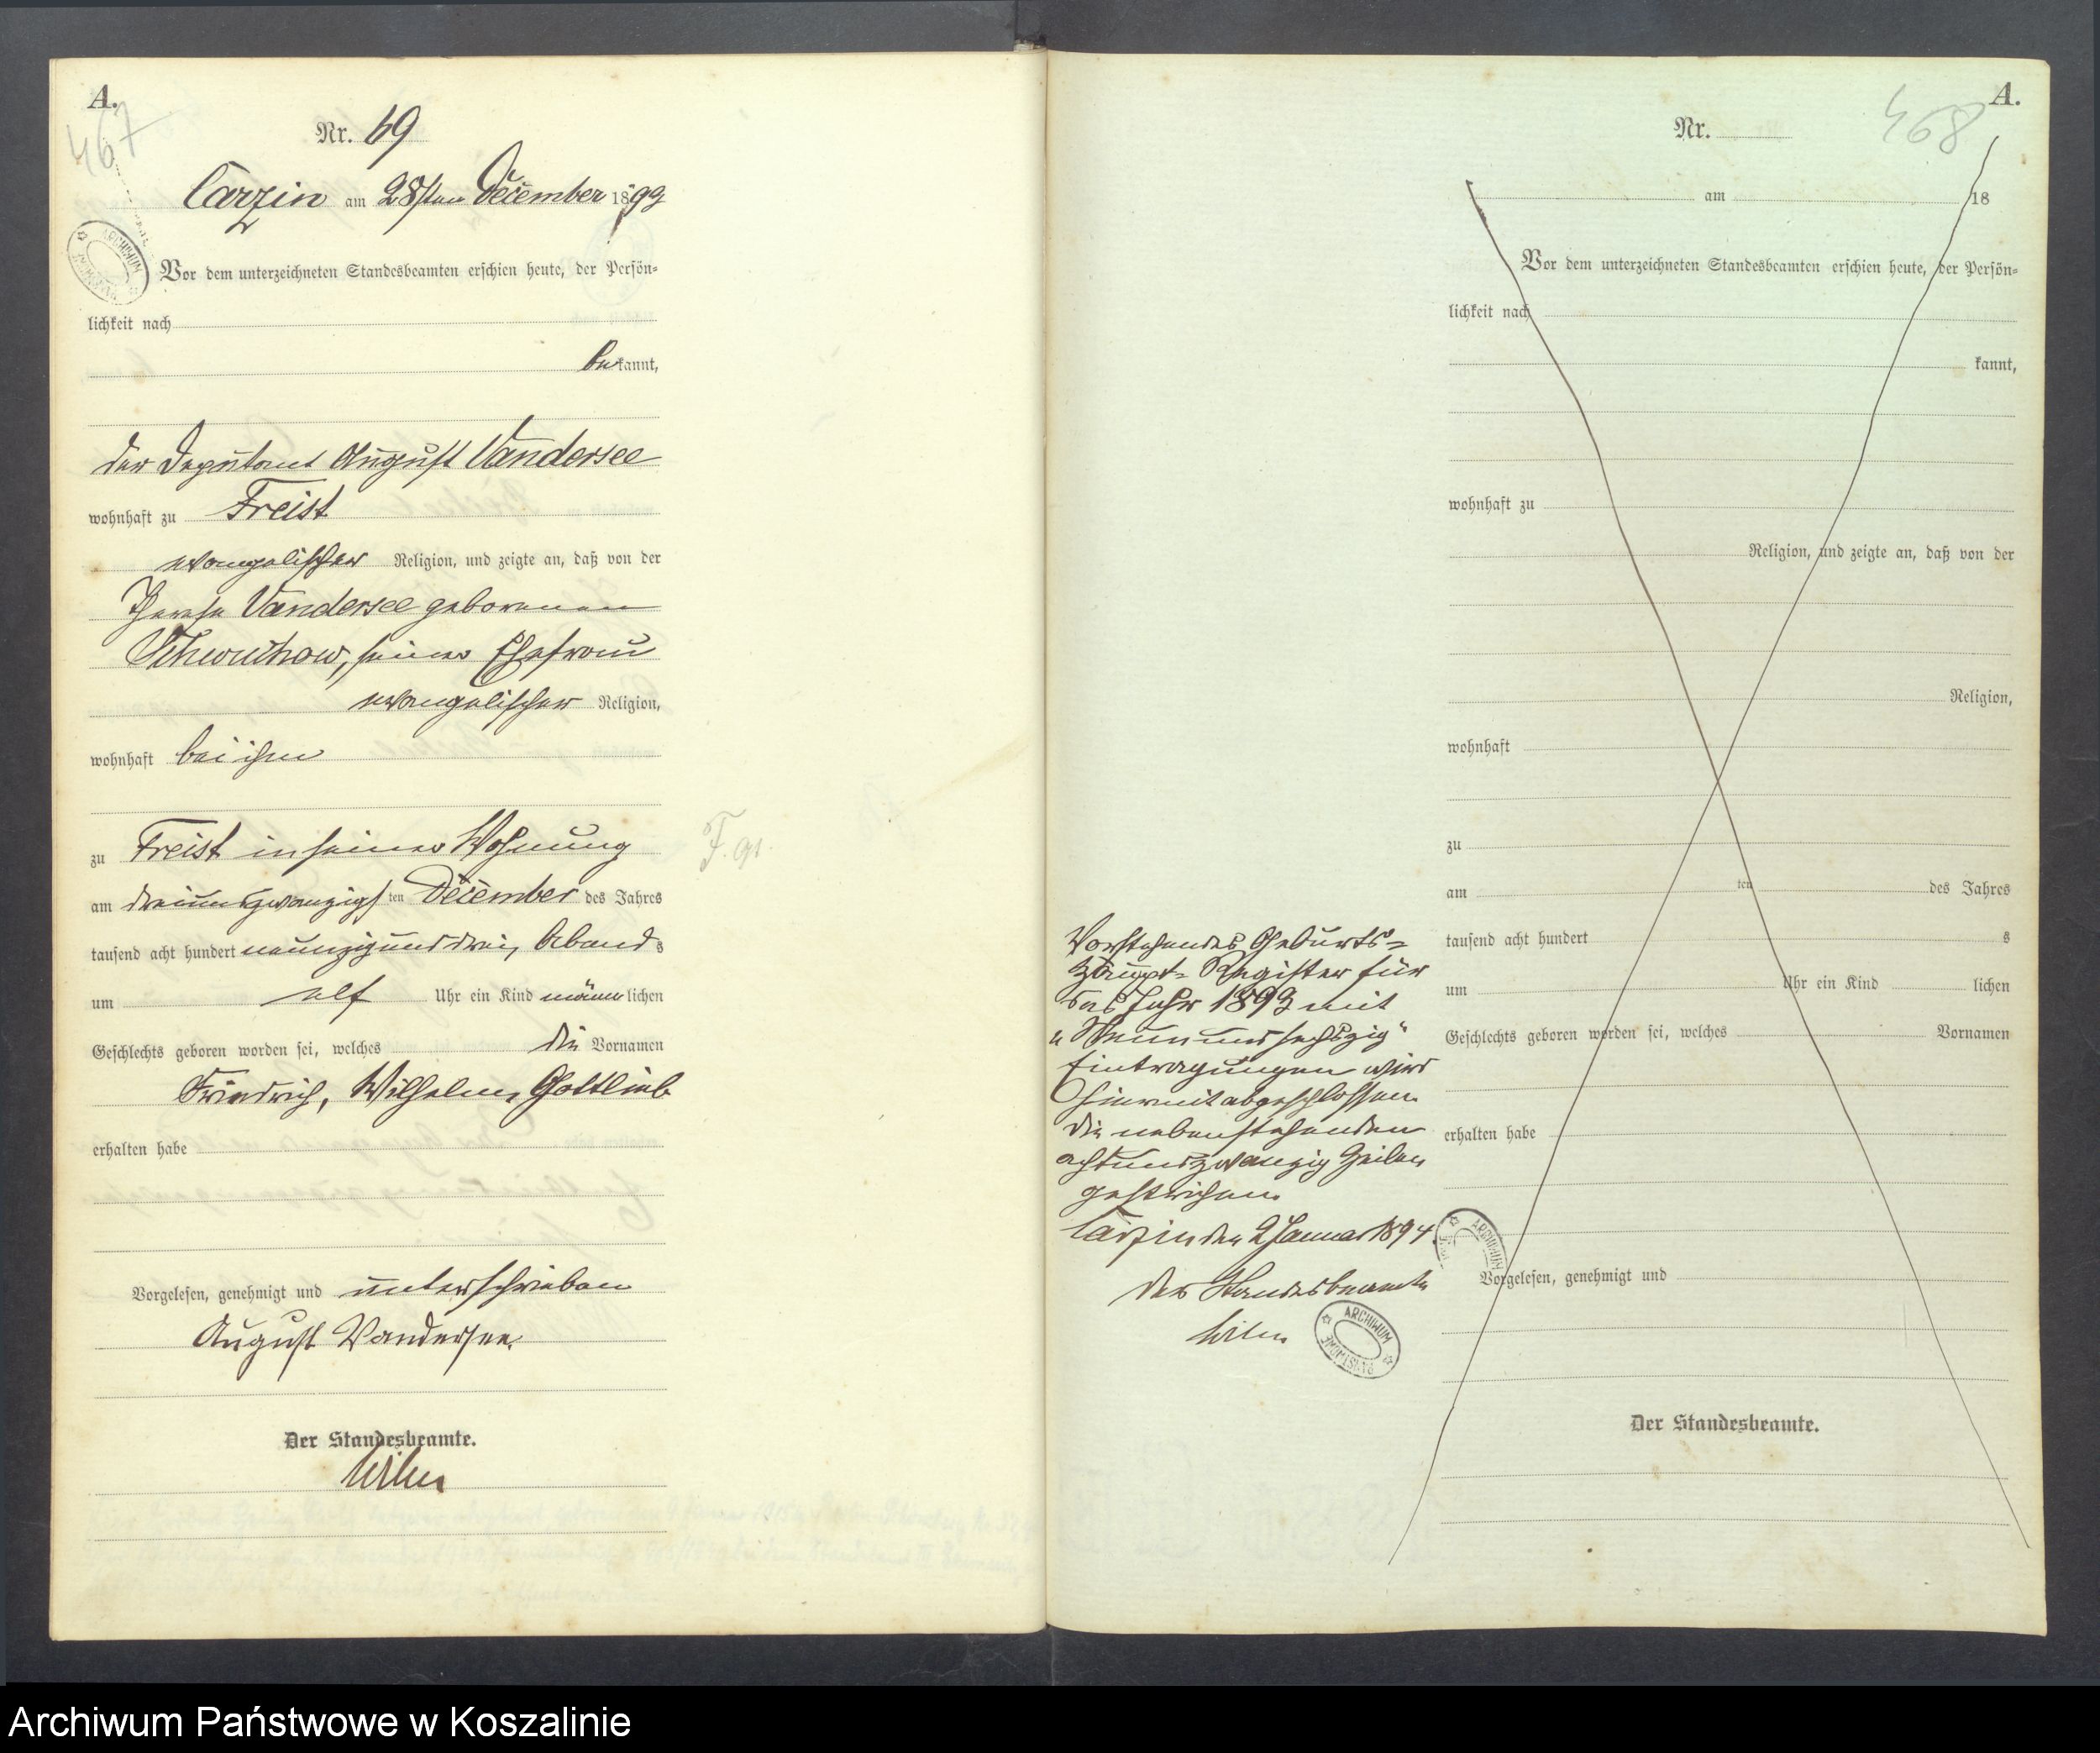 A.
467
Nr. 69
Carzin am 28sten December 1893
Vor dem unterzeichneten Standesbeamten erschien heute, der Persön=
lichkeit nach
bekannt,
der Deputant August Vandersee
wohnhaft zu Freist
evangelischer Religion, und zeigte an, daß von der
Therese Vandersee geborenen
Schwuchow, seiner Ehefrau
evangelischer Religion,
wohnhaft bei ihm
zu Freist in seiner Wohnung
am dreiundzwanzigsten December des Jahres
tausend acht hundert neunzig und drei, Abends
um elf Uhr ein Kind männlichen
Geschlechts geboren worden sei, welches die Vornamen
Friedrich, Wilhelm, Gottlieb
erhalten habe
Vorgelesen, genehmigt und unterschrieben
August Vandersee.
Der Standesbeamte.
ARCHIWUM
A.
468
Nr.
am 18
Vor dem unterzeichneten Standesbeamten erschien heute, der Persön=
lichkeit nach
kannt,
wohnhaft zu
Religion, und zeigte an, daß von der
Religion,
wohnhaft
zu
am ten des Jahres
tausend acht hundert s
um Uhr ein Kind lichen
Geschlechts geboren worden sei, welches Vornamen
erhalten habe
Vorgelesen, genehmigt und
Der Standesbeamte.
Vorstehendes Geburts=
Haupt=Register für
das Jahr 1893 mit
"Neunundsechszig"
Eintragungen wird
hiermit abgeschlossen.
Die nebenstehenden
achtundzwanzig Zeilen
gestrichen.
Carzin den 2 Januar 1894.
Der Standesbeamte
ARCHIWUM
ARCHIWUM
Archiwum Państwowe w Koszalinie